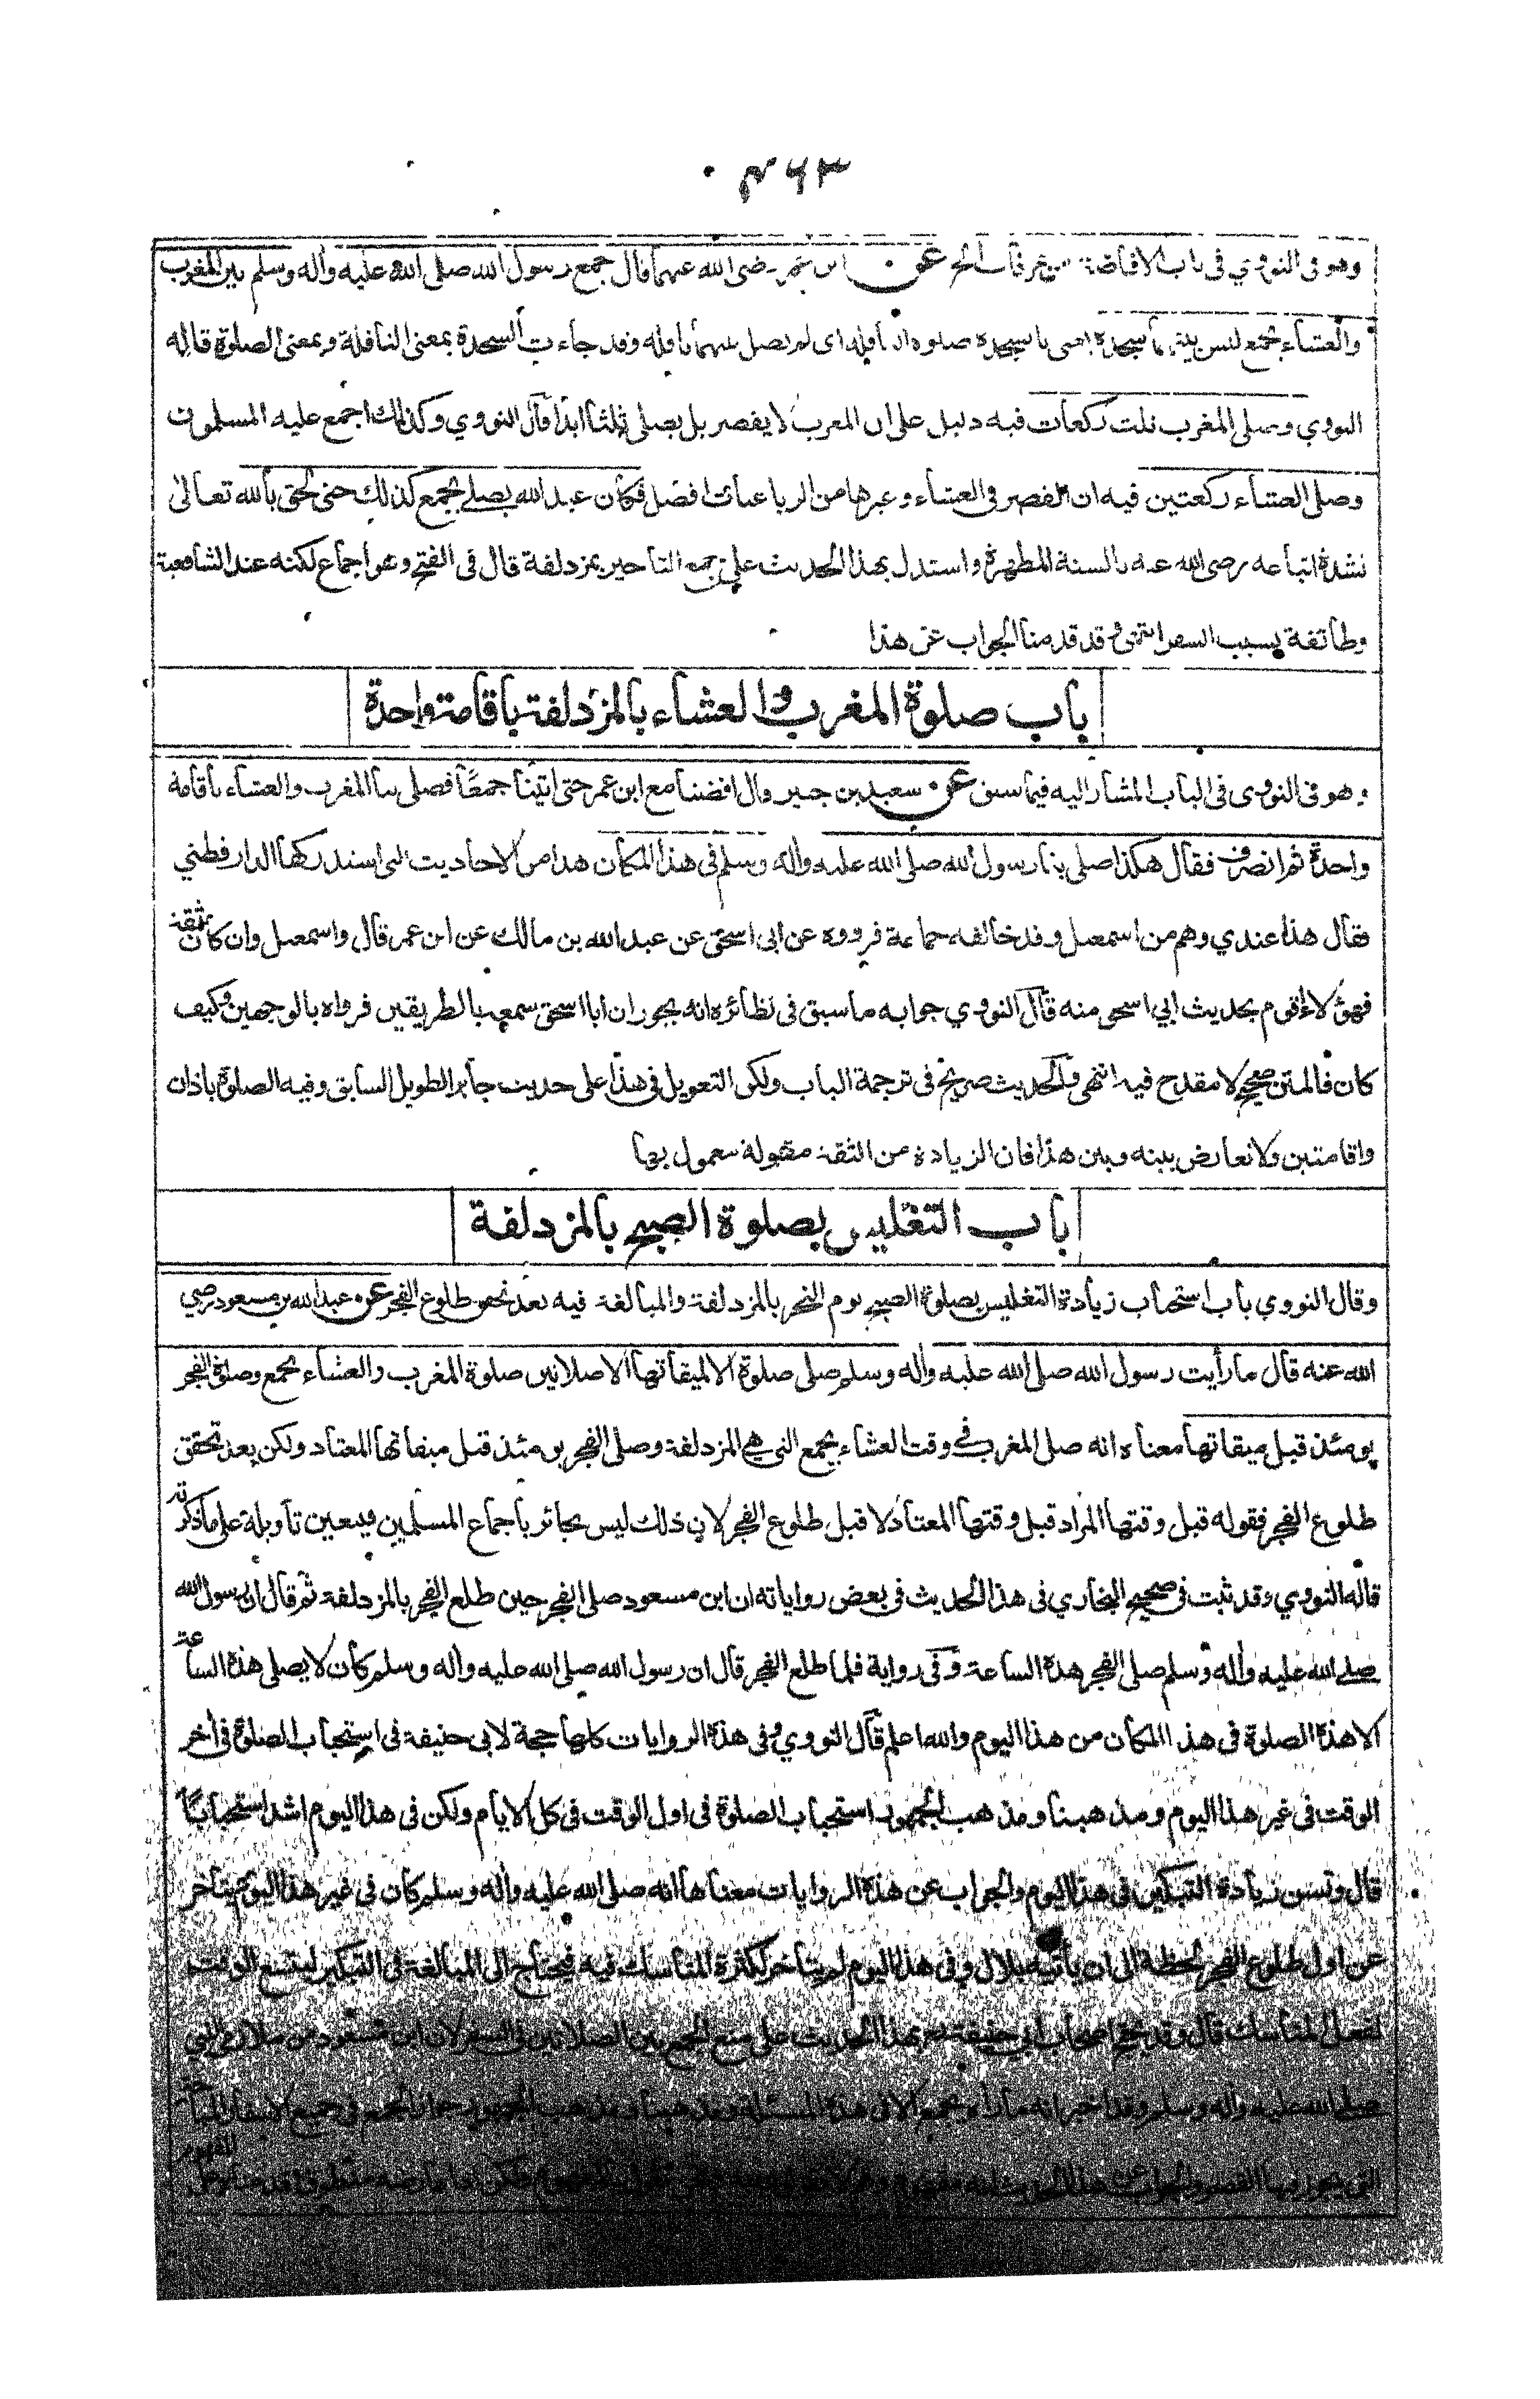 ٤٦٣
وهو في النووي في باب الافاضة من عرفات الخ عن ابن عمر رضي الله عنهما قال جمع رسول الله صلى الله عليه واله وسلم بين المغرب
والعشاء بجمع ليس بينهما سجدة يعني بالسجدة صلوة النافلة اي لم يصل بينهما نافلة وقد جاءت السجدة بمعنى النافلة وبمعنى الصلوة قاله
النووي وصلى المغرب ثلث ركعات فيه دليل على ان المغرب لا يقصر بل يصلى ثلثا ابدا قال النووي وكذلك اجمع عليه المسلمون
وصلى العشاء ركعتين فيه ان القصر في العشاء وغيرها من الرباعيات افضل فكان عبد الله يصلي بجمع كذلك حتى لحق بالله تعالى
لشدة اتباعه رضي الله عنه بالسنة المطهرة واستدل بهذا الحديث على جمع التاخير بمزدلفة قال في الفتح وهو اجماع لكنه عند الشافعية
وطائفة بسبب السفر انتهى وقد قدمنا الجواب عن هذا
باب صلوة المغرب والعشاء بالمزدلفة باقامة واحدة
وهو في النووي في الباب المشار اليه فيما سبق عن سعيد بن جبير قال افضنا مع ابن عمر حتى اتينا جمعا فصلى بنا المغرب والعشاء باقامة
واحدة ثم انصرف فقال هكذا صلى بنا رسول الله صلى الله عليه واله وسلم في هذا المكان هذا من الاحاديث التي استدركها الدارقطني
فقال هذا عندي وهم من اسمعيل وقد خالفه جماعة فرووه عن ابي اسحق عن عبد الله بن مالك عن ابن عمر قال واسمعيل وان كان ثقة
فهؤلاء اقوم بحديث ابي اسحق منه قال النووي جوابه ما سبق في نظائره انه يجوز ان ابا اسحق سمعه بالطريقين فرواه بالوجهين وكيف
كان فالمتن صحيح لا مقدح فيه انتهى والحديث صريح في ترجمة الباب ولكن التعويل في هذا على حديث جابر الطويل السابق وفيه الصلوة باذان
واقامتين ولا تعارض بينه وبين هذا فان الزيادة من الثقة مقبولة معمول بها
باب التغليس بصلوة الصبح بالمزدلفة
وقال النووي باب استحباب زيادة التغليس بصلوة الصبح يوم النحر بالمزدلفة والمبالغة فيه بعد تحقق طلوع الفجر عن عبد الله بن مسعود رضي
الله عنه قال ما رأيت رسول الله صلى الله عليه واله وسلم صلى صلوة الا لميقاتها الا صلاتين صلوة المغرب والعشاء بجمع وصلوة الفجر
يومئذ قبل ميقاتها معناه انه صلى المغرب في وقت العشاء بجمع التي هي المزدلفة وصلى الفجر يومئذ قبل ميقاتها المعتاد ولكن بعد تحقق
طلوع الفجر فقوله قبل وقتها المراد قبل وقتها المعتاد لا قبل طلوع الفجر لان ذلك ليس بجائز باجماع المسلمين فيتعين تاويله على ما ذكرته
قاله النووي وقد ثبت في صحيح البخاري في هذا الحديث في بعض رواياته ان ابن مسعود صلى الفجر حين طلع الفجر بالمزدلفة ثم قال ان رسول الله
صلى الله عليه واله وسلم صلى الفجر هذه الساعة وفي رواية فلما طلع الفجر قال ان رسول الله صلى الله عليه واله وسلم كان لا يصلي هذه الساعة
الا هذه الصلوة في هذا المكان من هذا اليوم والله اعلم قال النووي وفي هذه الروايات كلها حجة لابي حنيفة في استحباب الصلوة في اخر
الوقت في غير هذا اليوم ومذهبنا ومذهب الجمهور استحباب الصلوة في اول الوقت في كل الايام ولكن في هذا اليوم اشد استحبابا
قال وتسن زيادة التبكير في هذا اليوم والجواب عن هذه الروايات معناها انه صلى الله عليه واله وسلم كان في غير هذا اليوم يتأخر
عن اول طلوع الفجر لحظة الى ان ياتيه بلال وفي هذا اليوم لم يتأخر لكثرة المناسك فيه فيحتاج الى المبالغة في التبكير ليتسع الوقت
لفعل المناسك قال وقد يحتج اصحاب ابي حنيفة بهذا الحديث على منع الجمع بين الصلاتين في السفر لان ابن مسعود من ملازمي النبي
صلى الله عليه واله وسلم وقد اخبر انه ما رأه يجمع الا في هذه المسئلة ومذهبنا ومذهب الجمهور جواز الجمع في جميع الاسفار المباحة
التي يجوز فيها القصر والجواب عن هذا الحديث انه مفهوم المفهوم